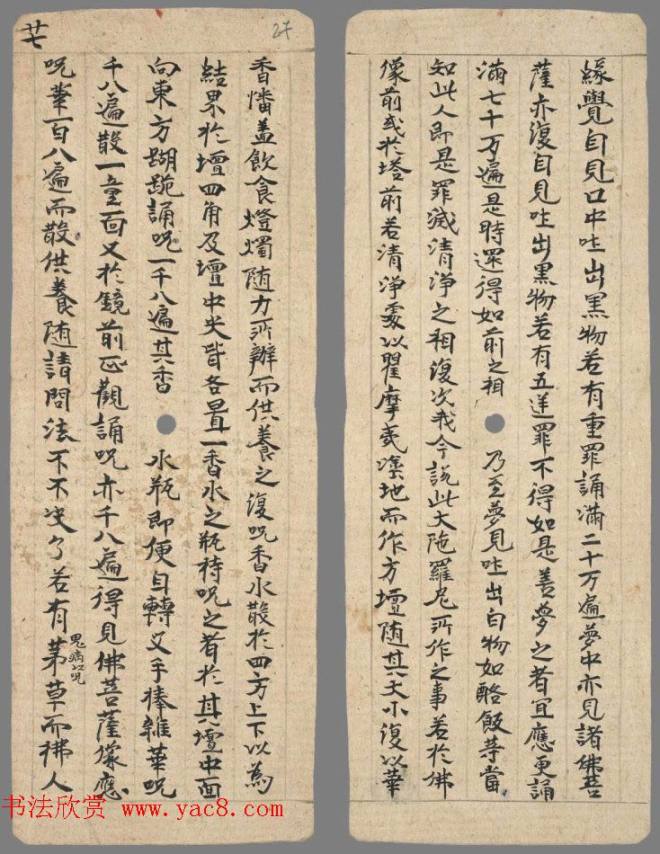 緣覺自見口中吐出黑物若有重罪誦滿二十万遍夢中亦見諸佛菩
薩亦復自見吐出黑物若有五逆罪不得如是善夢之者宜應更誦
滿七十万遍是時還得如前之相乃至夢見吐出白物如酪飯䓁當
知此人即是罪滅清淨之相復次我今說此大陁羅尼所作之事若於佛
像前或於塔前若清淨處以瞿摩夷塗地而作方壇随其大小復以華
香幡盖飲食燈燭随力所辦而供養之復呪香水散於四方上下以為
結界於壇四角及壇中央皆各置一香水之瓶持呪之者於其壇中面
向東方蹋跪誦呪一千八遍其香水瓶即便自轉叉手捧雜華呪
千八遍散一童面又於鏡前正觀誦呪亦千八遍得見佛菩薩像應
呪華一百八遍而散供養随請問法不不决了若有茅草而拂人
鬼病以呪
廿七
27
书法欣赏 www.yac8.com